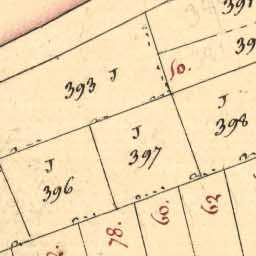 393 J
50.
J
398
J
397
J
396
62
60.
78.